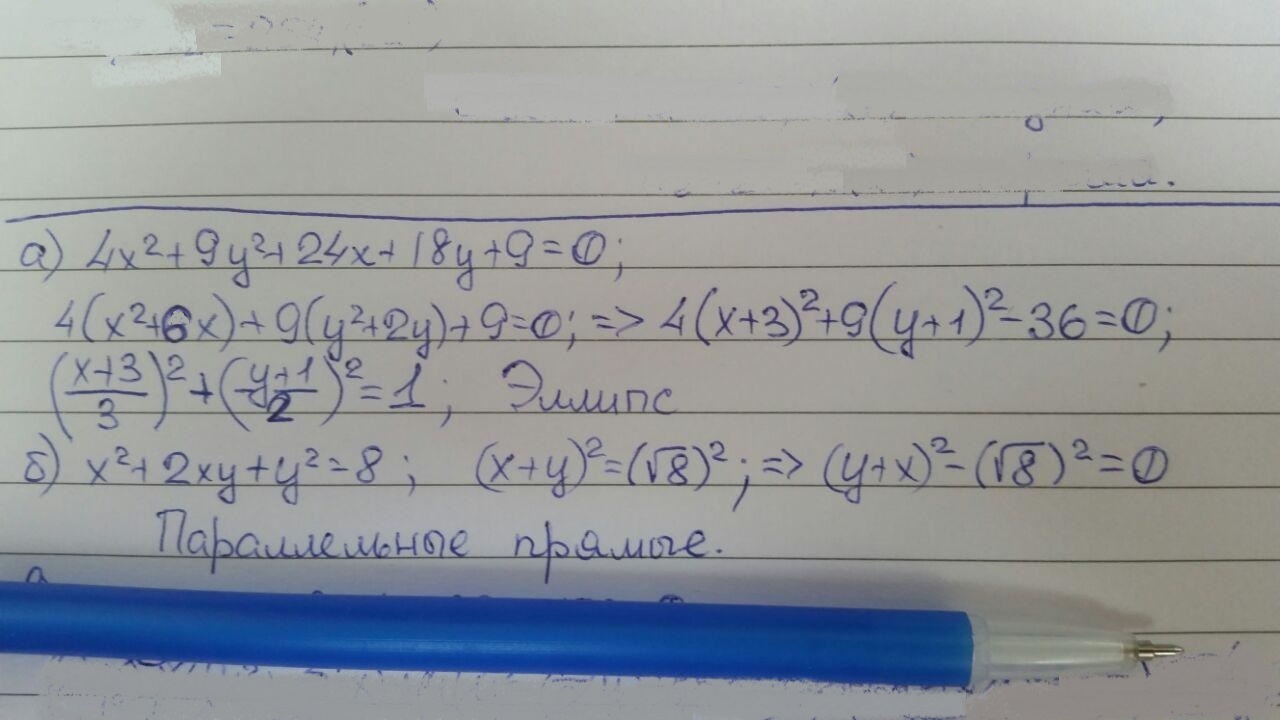 а) 4x²+9y²+24x+18y+9=0;
4(x²+6x)+9(y²+2y)+9=0; => 4(x+3)²+9(y+1)²-36=0;
((x+3)/3)²+((y+1)/2)²=1; Эллипс
б) x²+2xy+y²=8; (x+y)²=(√8)²; => (y+x)²-(√8)²=0
Параллельные прямые.